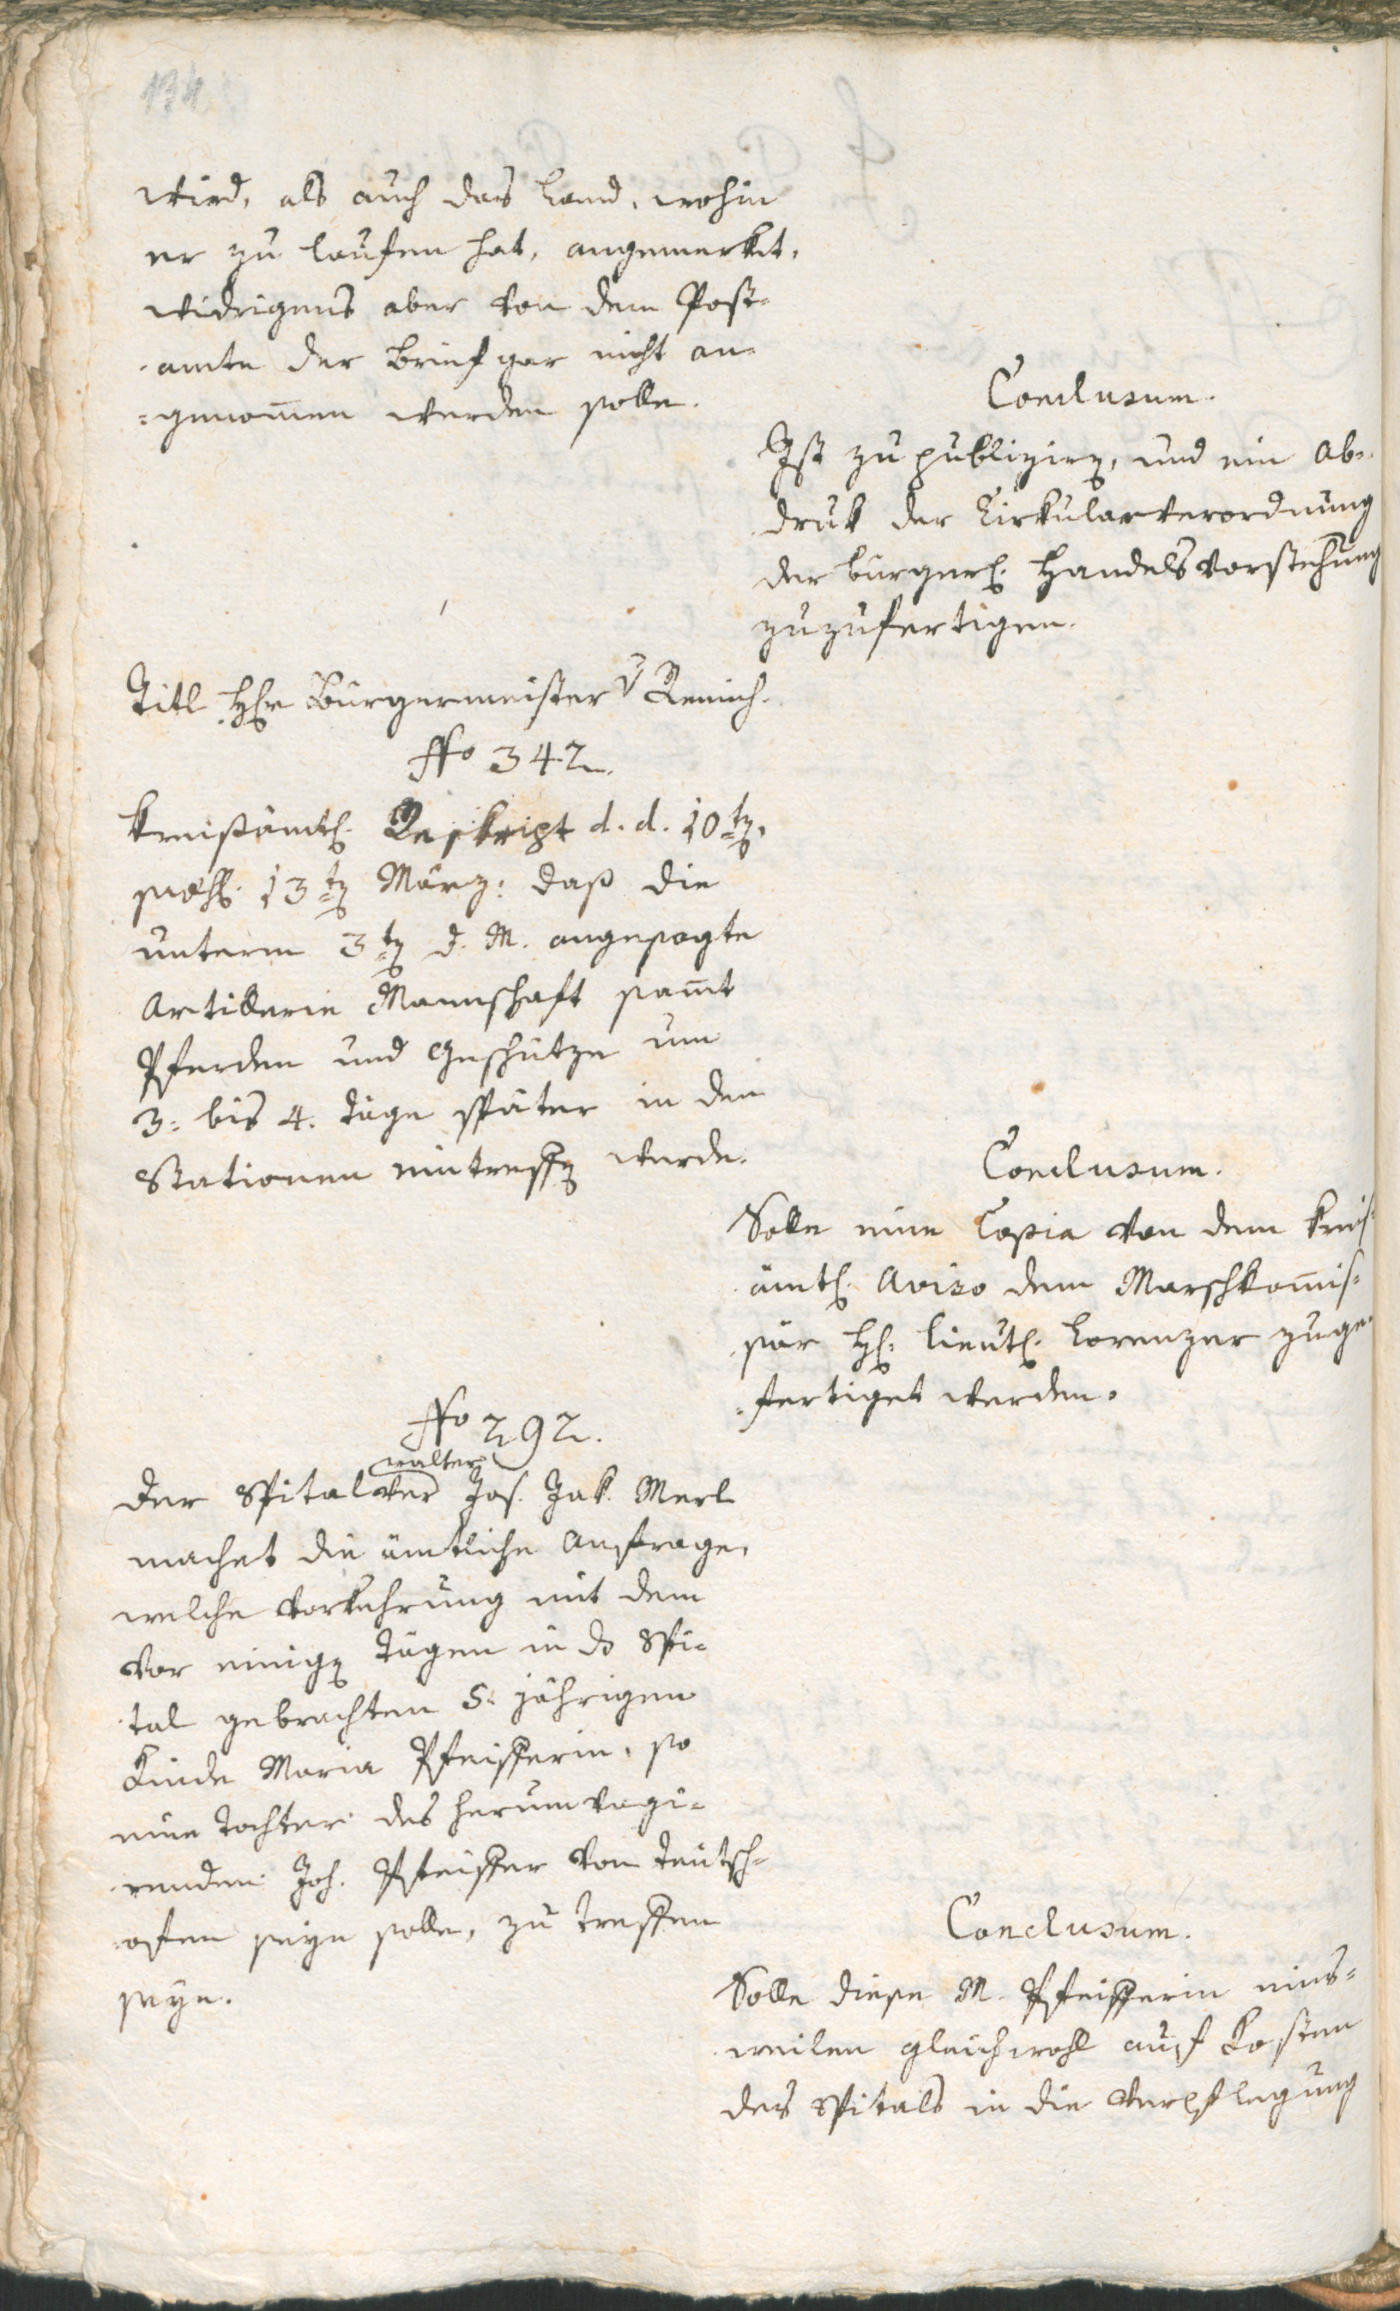 134
wird, als auch das Land, wohin
er zu laufen hat, angemerket,
widrigens aber von dem Post-
amte der Brief gar nicht an-
=genom̅en werden solle.
Conclusum.
Ist zu publiziren, und ein Ab-
druk der Cirkularverordnung
der bürgerl. Handelsvorstehung
zuzufertigen.
Titl Hr Bürgermeister v
No 342.
Kreisämtl. Reskript d. d. 10ten,
13ten März: daß die
unterm 3ten d. M. angesagte
Artillerie Mannschaft sam̅t
Pferden und Geschütze um
3: bis 4. Täge später in den
Stationen eintreffen werde.
Conclusum.
Solle eine Copia von dem Kreis-
ämtl. Aviso dem Marschkom̅is-
sär H: Lieut. Lorenzer zuge-
=fertiget werden.
No 292.
walter
Der Spitalver Jos. Jak. Merl
machet die ämtliche Anfrage,
welche Vorkehrung mit dem
vor einigen Tägen in ds Spi-
tal gebrachten 5. jährigen
Kinde Maria Pfeifferin, so
eine Tochter des herumvagi-
renden Joh. Pfeiffer von Teutsch-
ofen seyn solle, zu treffen
seye.
Conclusum.
Solle diese M. Pfeifferin eins-
weilen gleichwohl auf Kosten
des Spitals in die Verpflegung